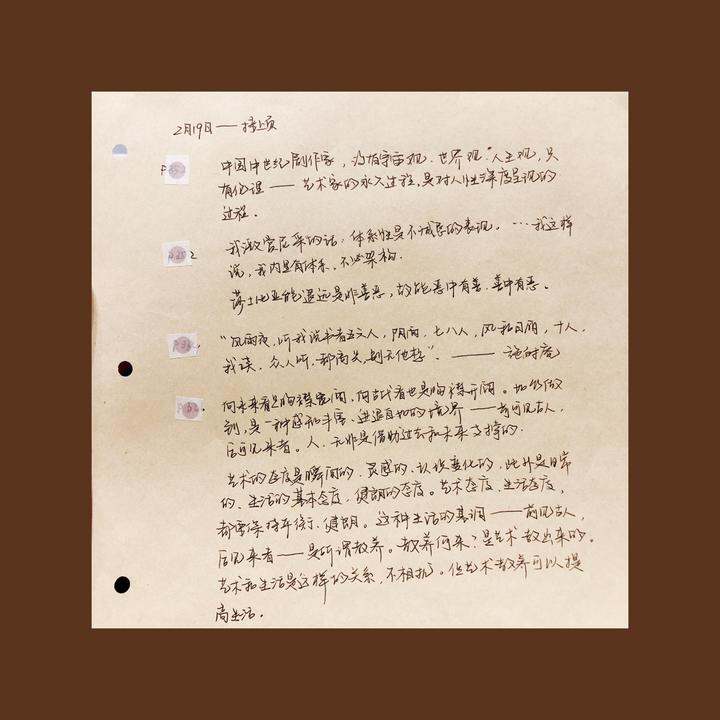 2月19日——接上页
中国中世纪剧作家,没有宇宙观、世界观、人生观,只
有伦理——艺术家的永久过程,是对人性深度呈现的
过程。
我激赏尼采的话:体系性是不诚恳的表现。…我这样
说,我内里有体系,不必架构。
莎士比亚能超远是非善恶,故能恶中有善,善中有恶。
"风雨夜,听我说书者五六人,阴雨,七八人,风和日丽,十人,
我读,众人听,都高兴,别无他想"。——施耐庵
向未来看是胸襟宽阔,向古代看也是胸襟开阔。如能做
到,是一种感知丰富、进退自如的境界——前可见古人,
后可见来者。人,无非是借助过去和未来支撑的。
艺术的态度是瞬间的、灵感的、认识变化的,此外是日常
的、生活的基本态度,健朗的态度。艺术态度、生活态度,
都要保持平衡、健朗。这种生活的基调——前见古人,
后见来者——是所谓教养。教养何来?是艺术教出来的。
艺术和生活是这样的关系,不相扰。但艺术教养可以提
高生活。